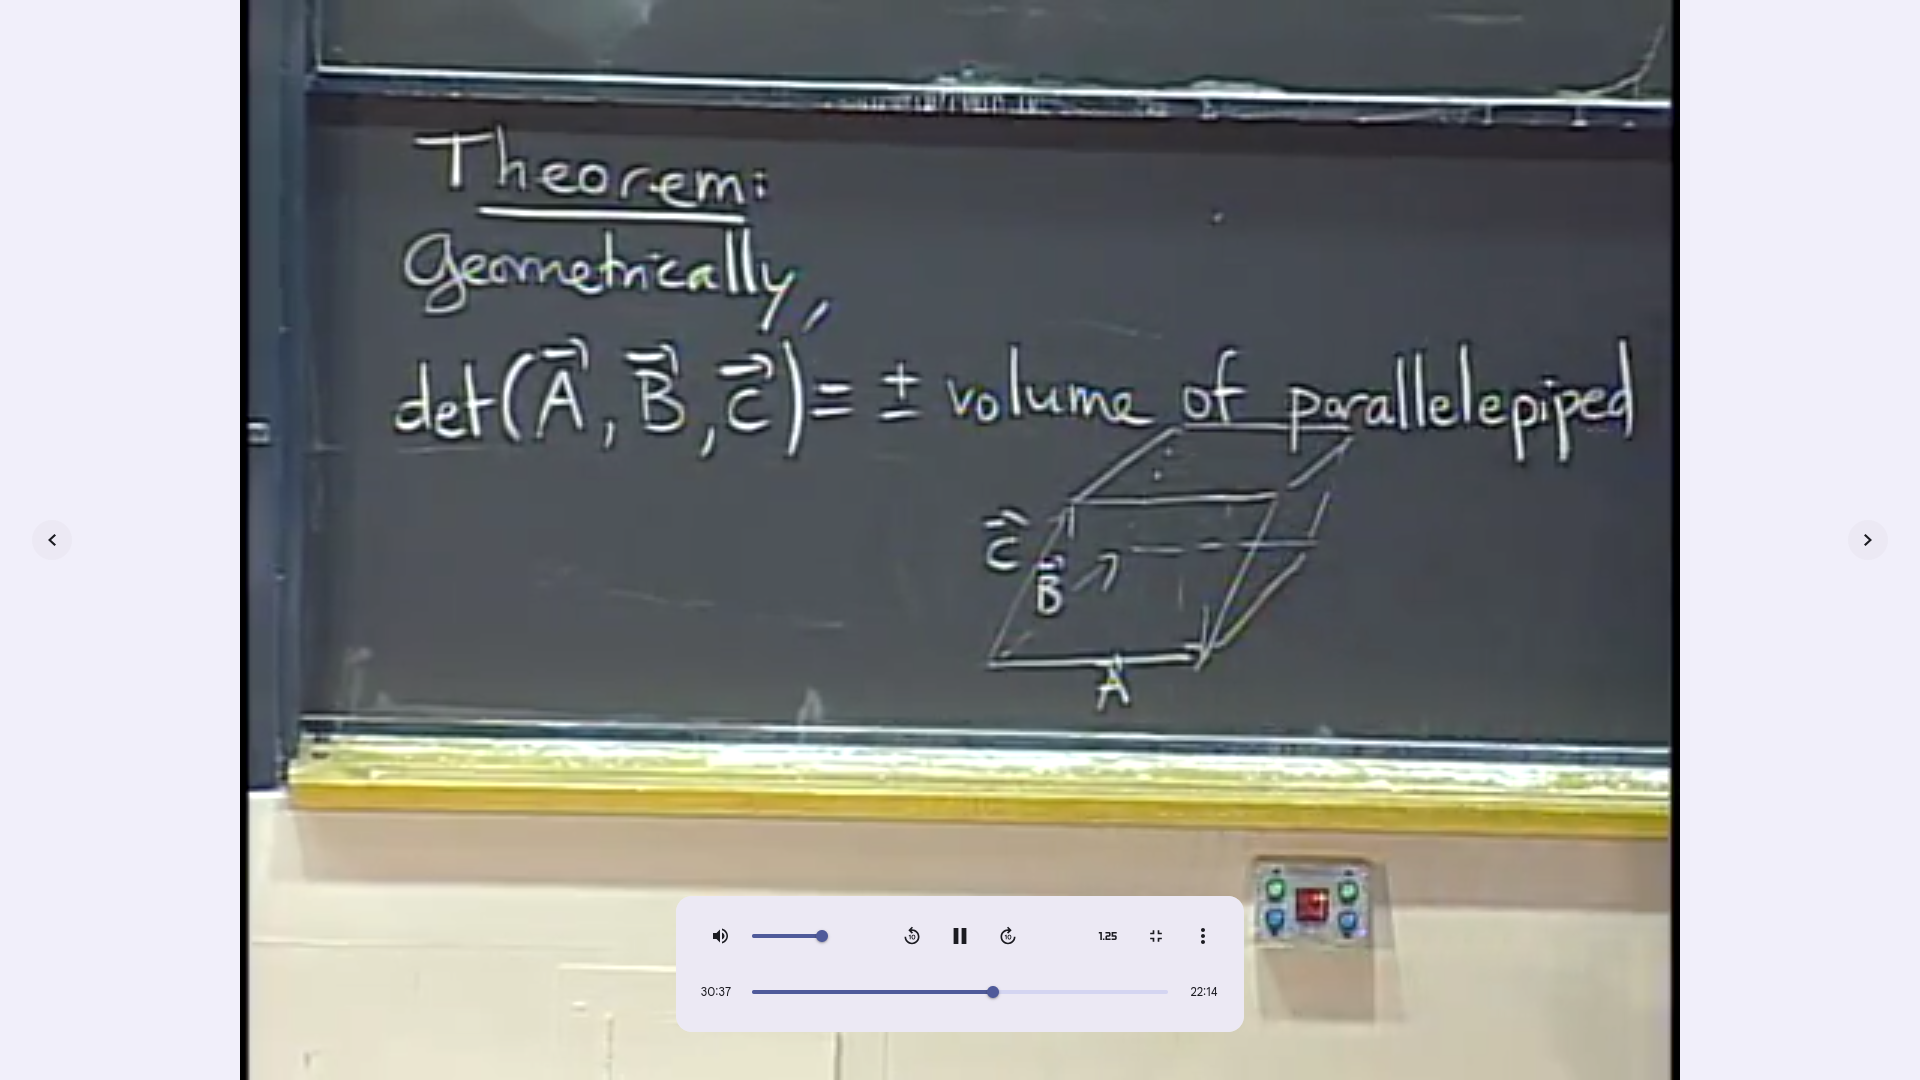 Theorem:
Geometrically,
det(A⃗, B⃗, C⃗) = ± volume of parallelepiped
C⃗
B⃗
A
10
10
1.25
30:37
22:14